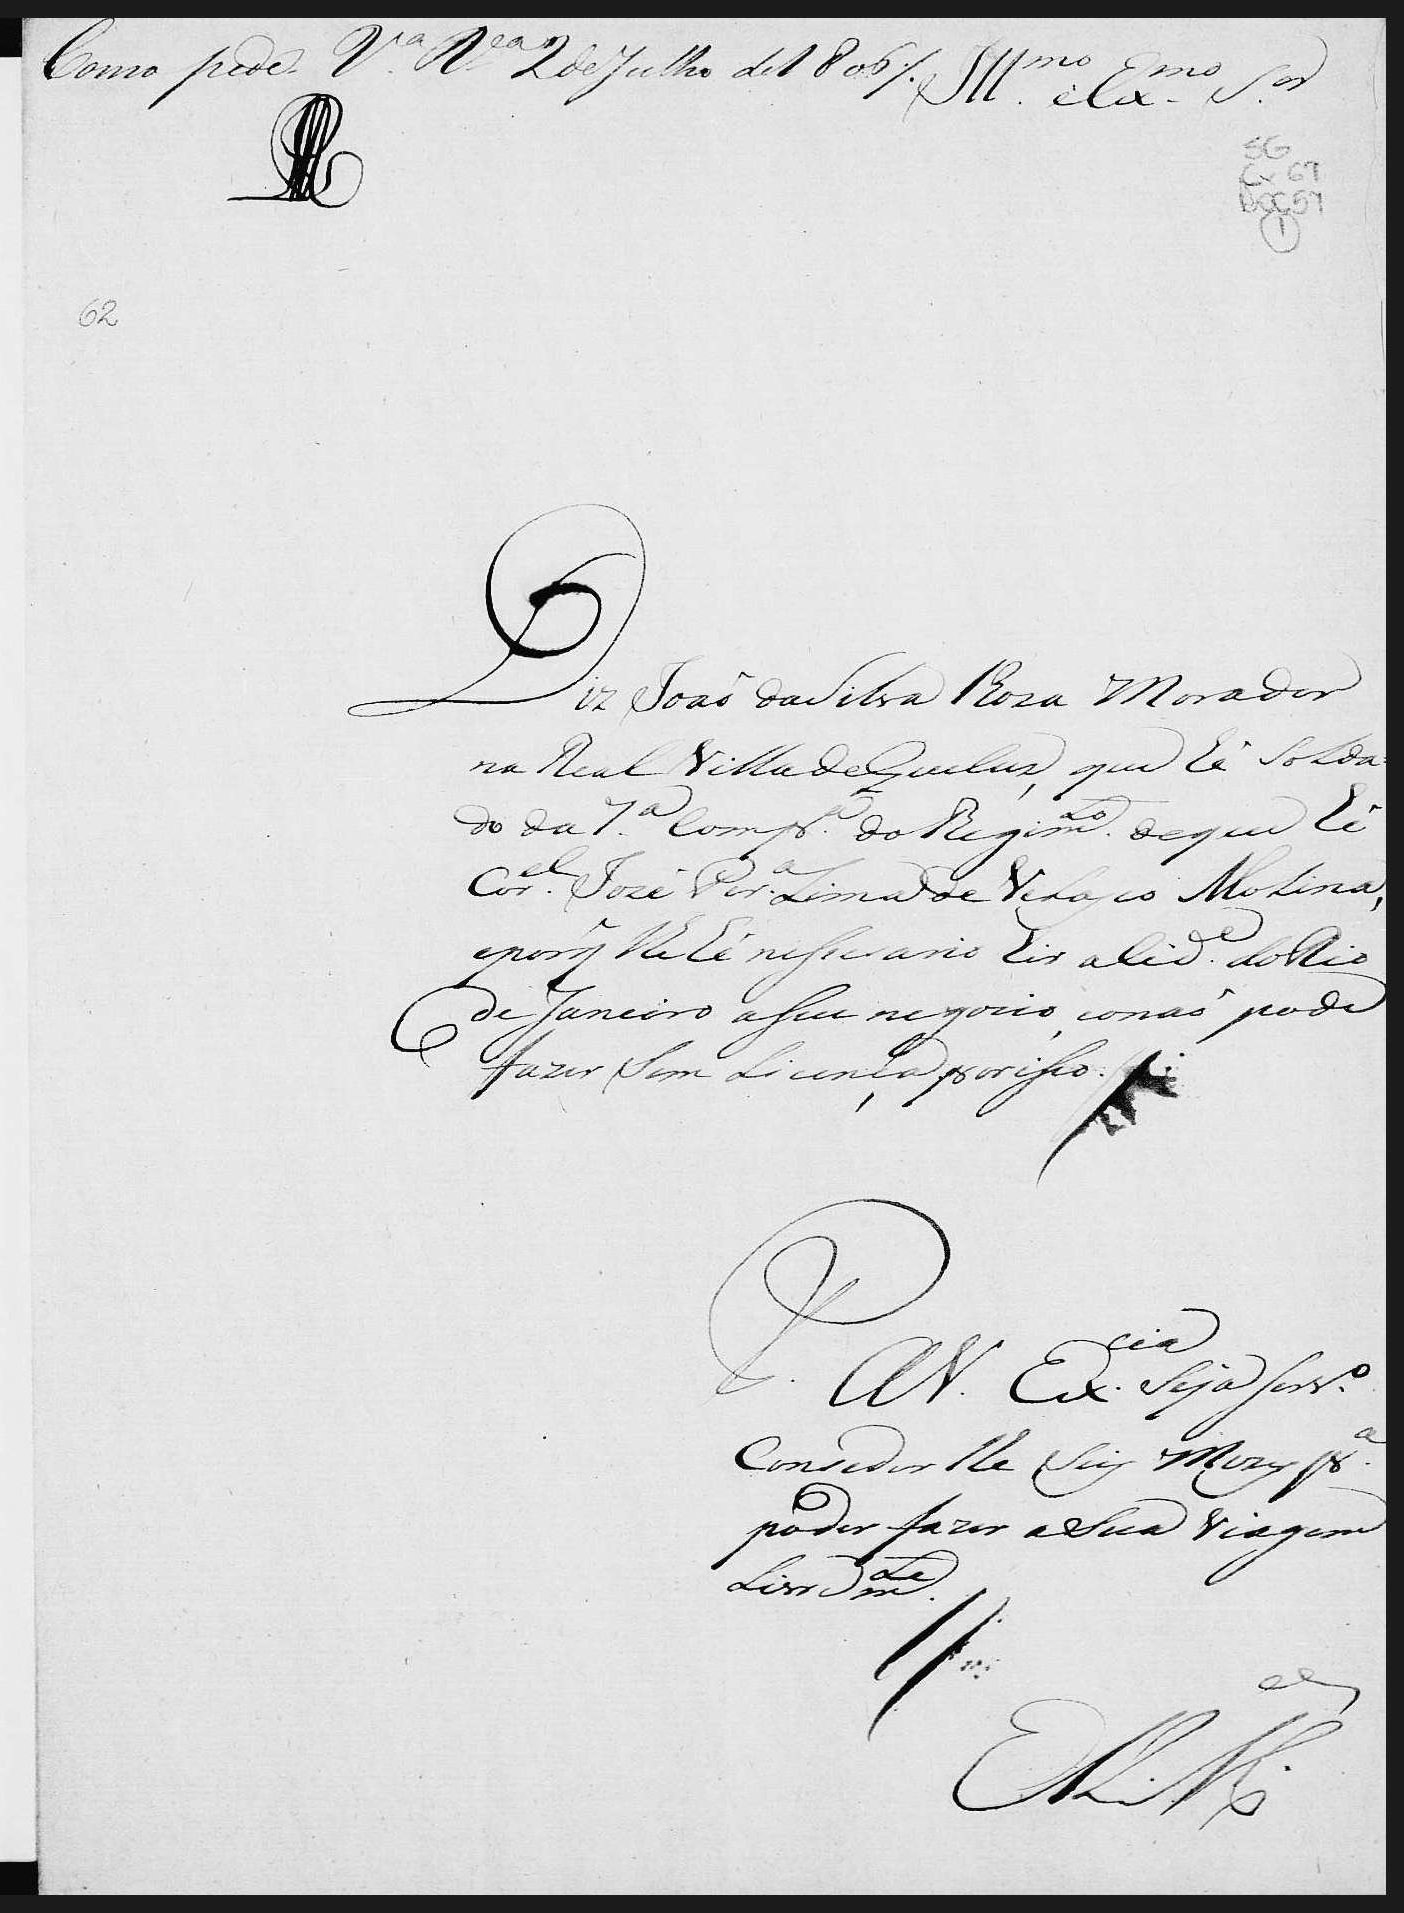 Como pede. V.ª R.ca 2 de Julho de 1806/. Ill.mo e Ex.mo S.or
SG
Cx 67
DOC 57
1
62
Diz Joaõ da Silva Roza Morador
na Real Villa de Queluz, que hê Solda-
do da 7.ª Comp.ª do Regim.to de que hê
Cor.el José Per.ª Lima de Velasco Molina,
e porq̃ lhe hê nessesario hir a Cid.e do Rio
de Janeiro a seu negocio, o naõ pode
fazer Sem Licença, por isso
P. A V. Ex.cia Seja Serv.º
Conseder lhe Seis Mezes p.ª
poder fazer a Sua Viagem
Livrem.te
E R. M.ce